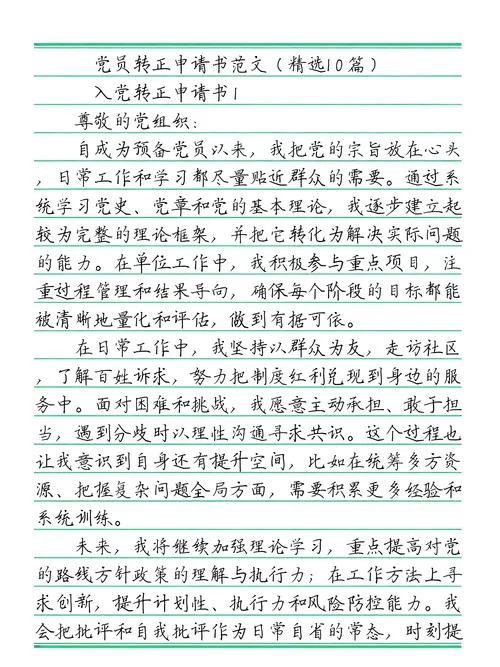 党员转正申请书范文（精选10篇）
入党转正申请书1
尊敬的党组织：
自成为预备党员以来，我把党的宗旨放在心头
，日常工作和学习都尽量贴近群众的需要。通过系
统学习党史、党章和党的基本理论，我逐步建立起
较为完整的理论框架，并把它转化为解决实际问题
的能力。在单位工作中，我积极参与重点项目，注
重过程管理和结果导向，确保每个阶段的目标都能
被清晰地量化和评估，做到有据可依。
在日常工作中，我坚持以群众为友，走访社区
，了解百姓诉求，努力把制度红利兑现到身边的服
务中。面对困难和挑战，我愿意主动承担、敢于担
当，遇到分歧时以理性沟通寻求共识。这个过程也
让我意识到自身还有提升空间，比如在统筹多方资
源、把握复杂问题全局方面，需要积累更多经验和
系统训练。
未来，我将继续加强理论学习，重点提高对党
的路线方针政策的理解与执行力；在工作方法上寻
求创新，提升计划性、执行力和风险防控能力。我
会把批评和自我批评作为日常自省的常态，时刻提